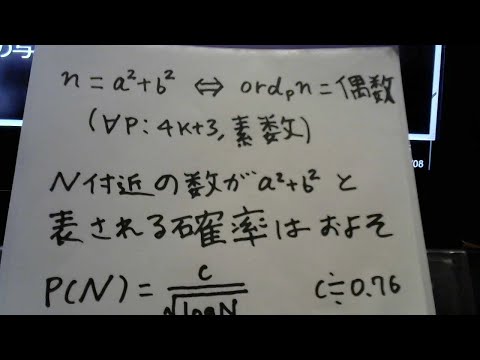 n = a²+b² ⇔ ordₚn = 偶数
(∀P: 4K+3, 素数)
N付近の数がa²+b²と
表される確率はおよそ
P(N) = c/√logN  c≒0.76